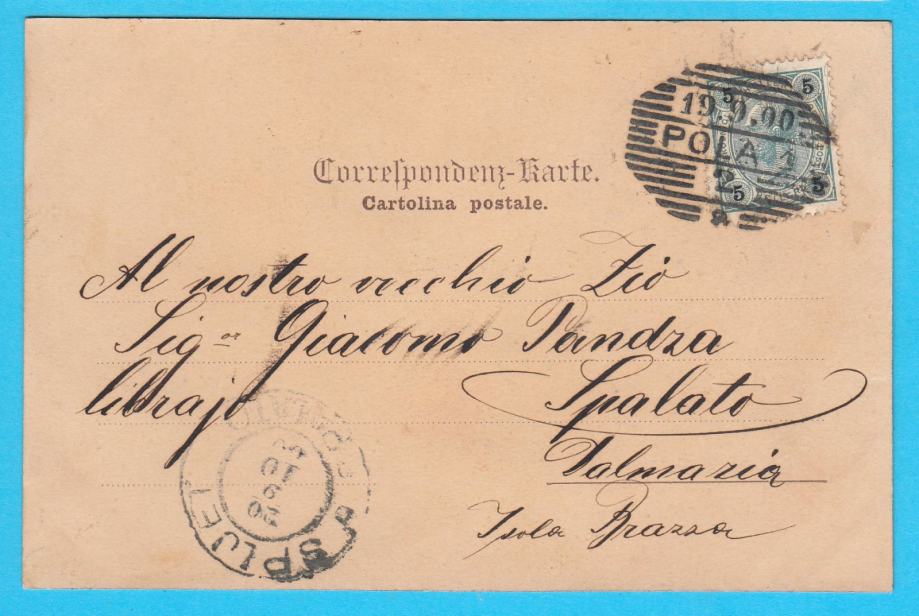 5 5
19.9.00
POLA 1
2
5 5
a
Correspondenz-Karte.
Cartolina postale.
Al nostro vecchio Zio
Sig.or Giacomo Pandza
librajo Spalato
Dalmazia
Isola Brazza
SPLJET